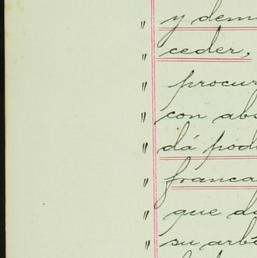 " y dem
" ceder,
" procur
" con abs
" dá pod
" franca
" que da
" su arbi